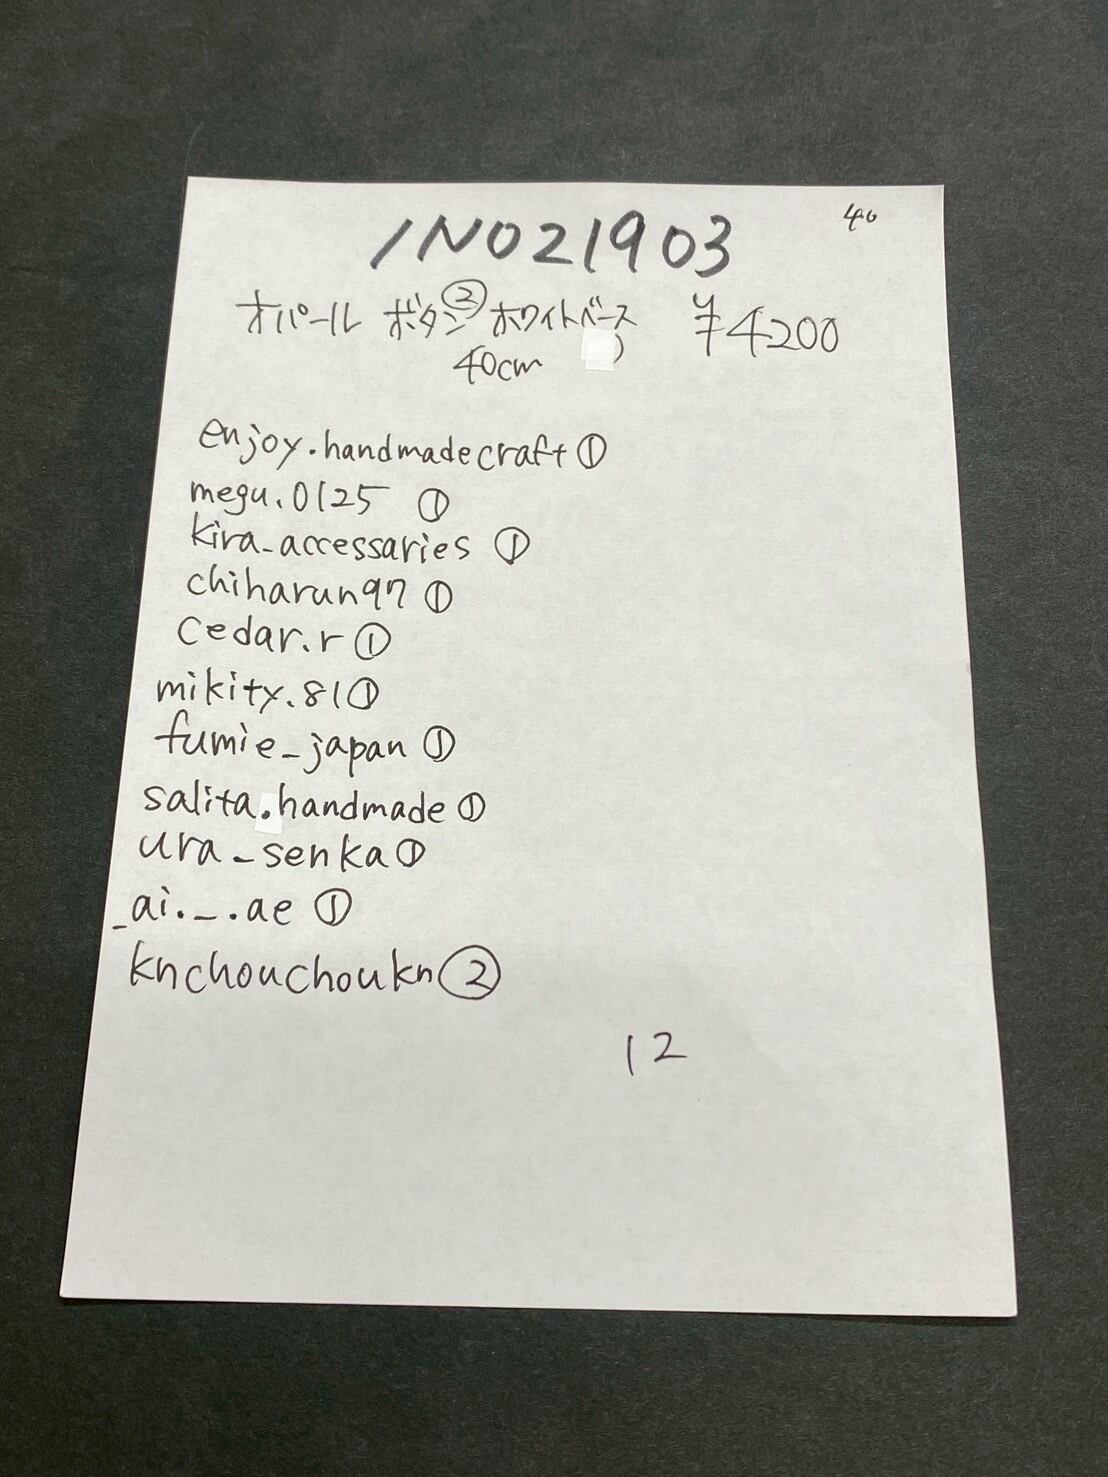 40
IN021903
オパール ボタン② ホワイトベース ¥4200
40cm )
enjoy.handmadecraft①
megu.0125 ①
kira_accessaries ①
chiharun97 ①
cedar.r ①
mikity.81①
fumie_japan ①
salita.handmade ①
ura_senka①
_ai._.ae ①
knchouchoukn②
12